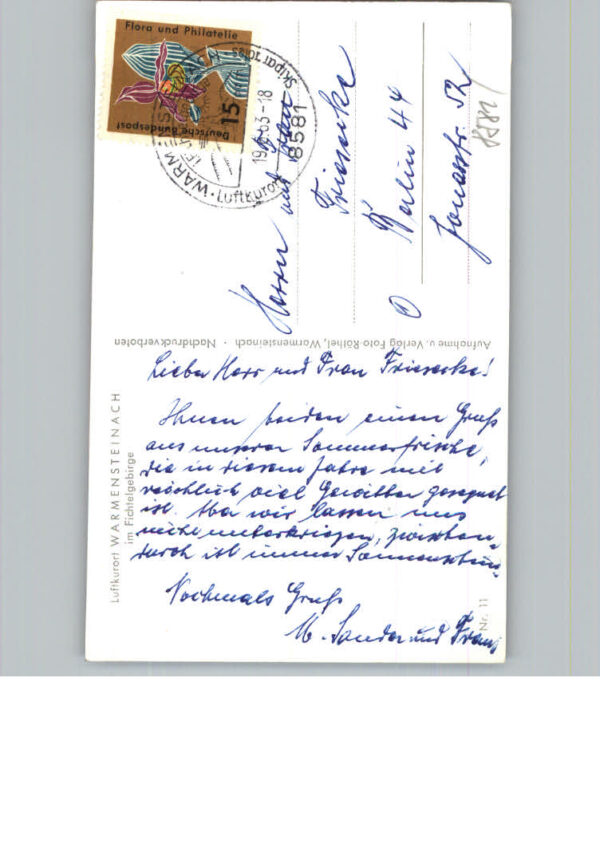 Flora und Philatelie
15
Deutsche Bundespost
WARMENSTEINACH
Skiparadies
19. 63-18
8581
Luftkurort
Herrn und Frau
Friesecke
Berlin 44
Jonasstr. 52
Aufnahme u. Verlag Foto-Röthel, Warmensteinach · Nachdruckverboten
Luftkurort WARMENSTEINACH
im Fichtelgebirge
Lieber Herr und Frau Friesecke!
Ihnen beiden einen Gruß
aus unserer Sommerfrische,
die in diesem Jahre mit
reichlich viel Gewitter gesegnet
ist. Aber wir lassen uns
nicht unterkriegen, zwischen-
durch ist immer Sonnenschein.
Nochmals Gruß
M. Sander und Frau
Nr. 11